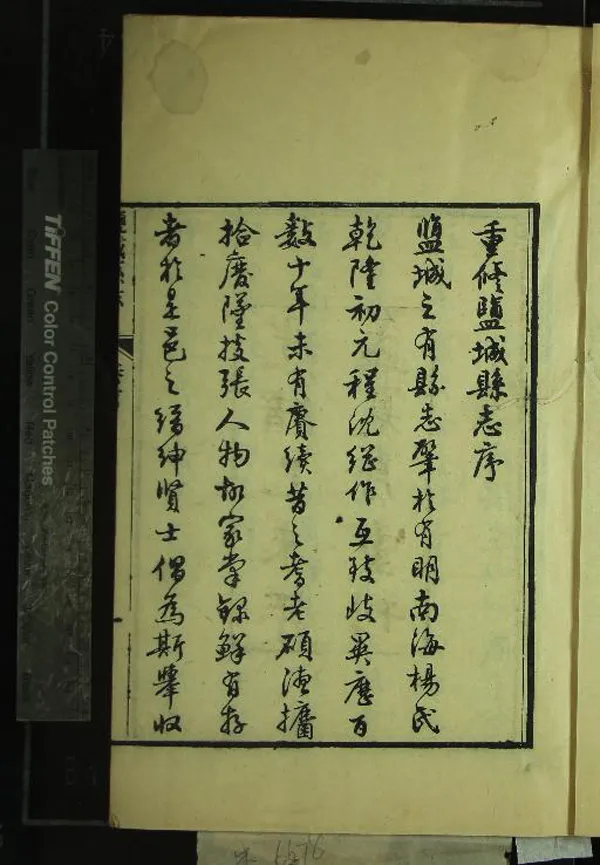 重修鹽城縣志序
鹽城之有縣志肇於有明南海楊氏
乾隆初元程沈繼作互歧異歷百
數十年未有賡續昔之耆老碩德攟
拾廢墜張人物故家掌錄鮮有存
者於是邑之縉紳賢士倡為斯舉收
TIFFEN Color Control Patches